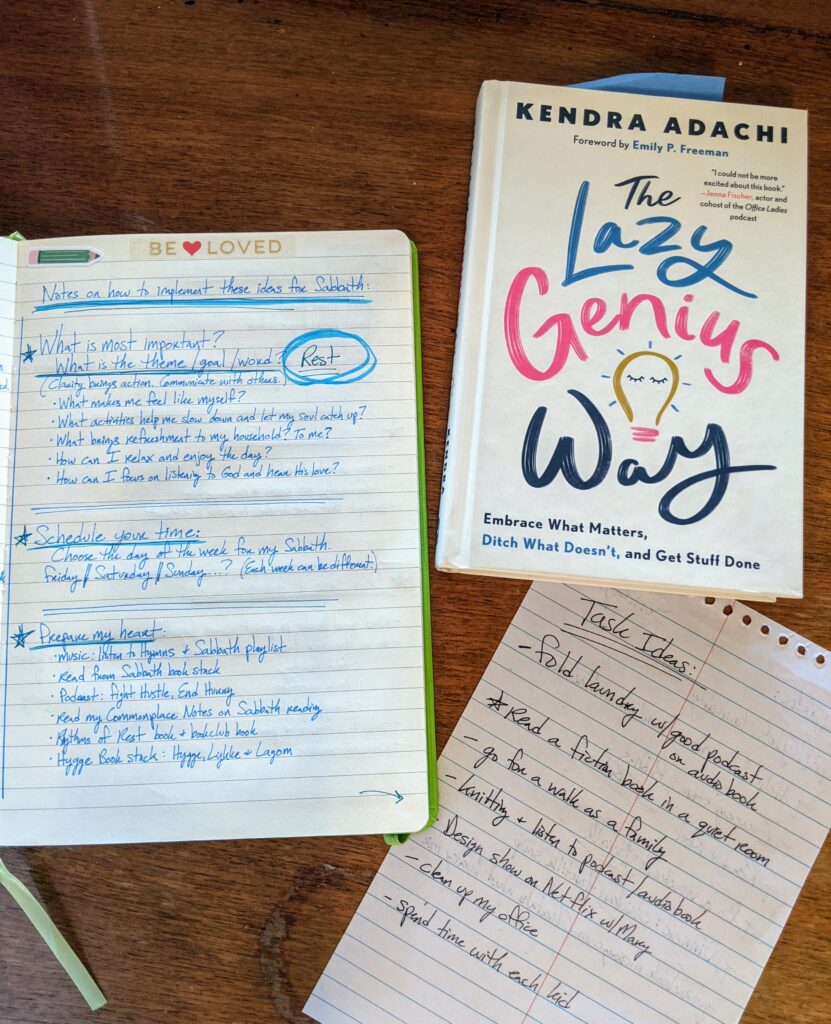 BE LOVED
Notes on how to implement these ideas for Sabbath:
What is most important?
What is the theme/goal/word? Rest
(Clarity brings action. Communicate with others.)
• What makes me feel like myself?
• What activities help me slow down and let my soul catch up?
• What brings refreshment to my household? To me?
• How can I relax and enjoy the day?
• How can I focus on listening to God and hear His love?
Schedule your time:
Choose the day of the week for my Sabbath.
Friday // Saturday // Sunday...? (Each week can be different.)
Prepare my heart:
• Music: listen to Hymns + Sabbath playlist
• Read from Sabbath book stack
• Podcast: Fight Hustle, End Hurry
• Read my Commonplace Notes on Sabbath reading
• Rhythms of Rest book + bookclub book
• Hygge Book stack: Hygge, Lykke + Lagom
KENDRA ADACHI
Foreword by Emily P. Freeman
"I could not be more
excited about this book."
—Jenna Fischer, actor and
cohost of the Office Ladies
podcast
The
Lazy
Genius
Way
Embrace What Matters,
Ditch What Doesn't, and Get Stuff Done
Task Ideas:
- fold laundry w/ good podcast
or audiobook
* Read a fiction book in a quiet room
- go for a walk as a family
- knitting + listen to podcast/audiobook
Design show on Netflix w/ Mary
- clean up my office
- spend time with each kid